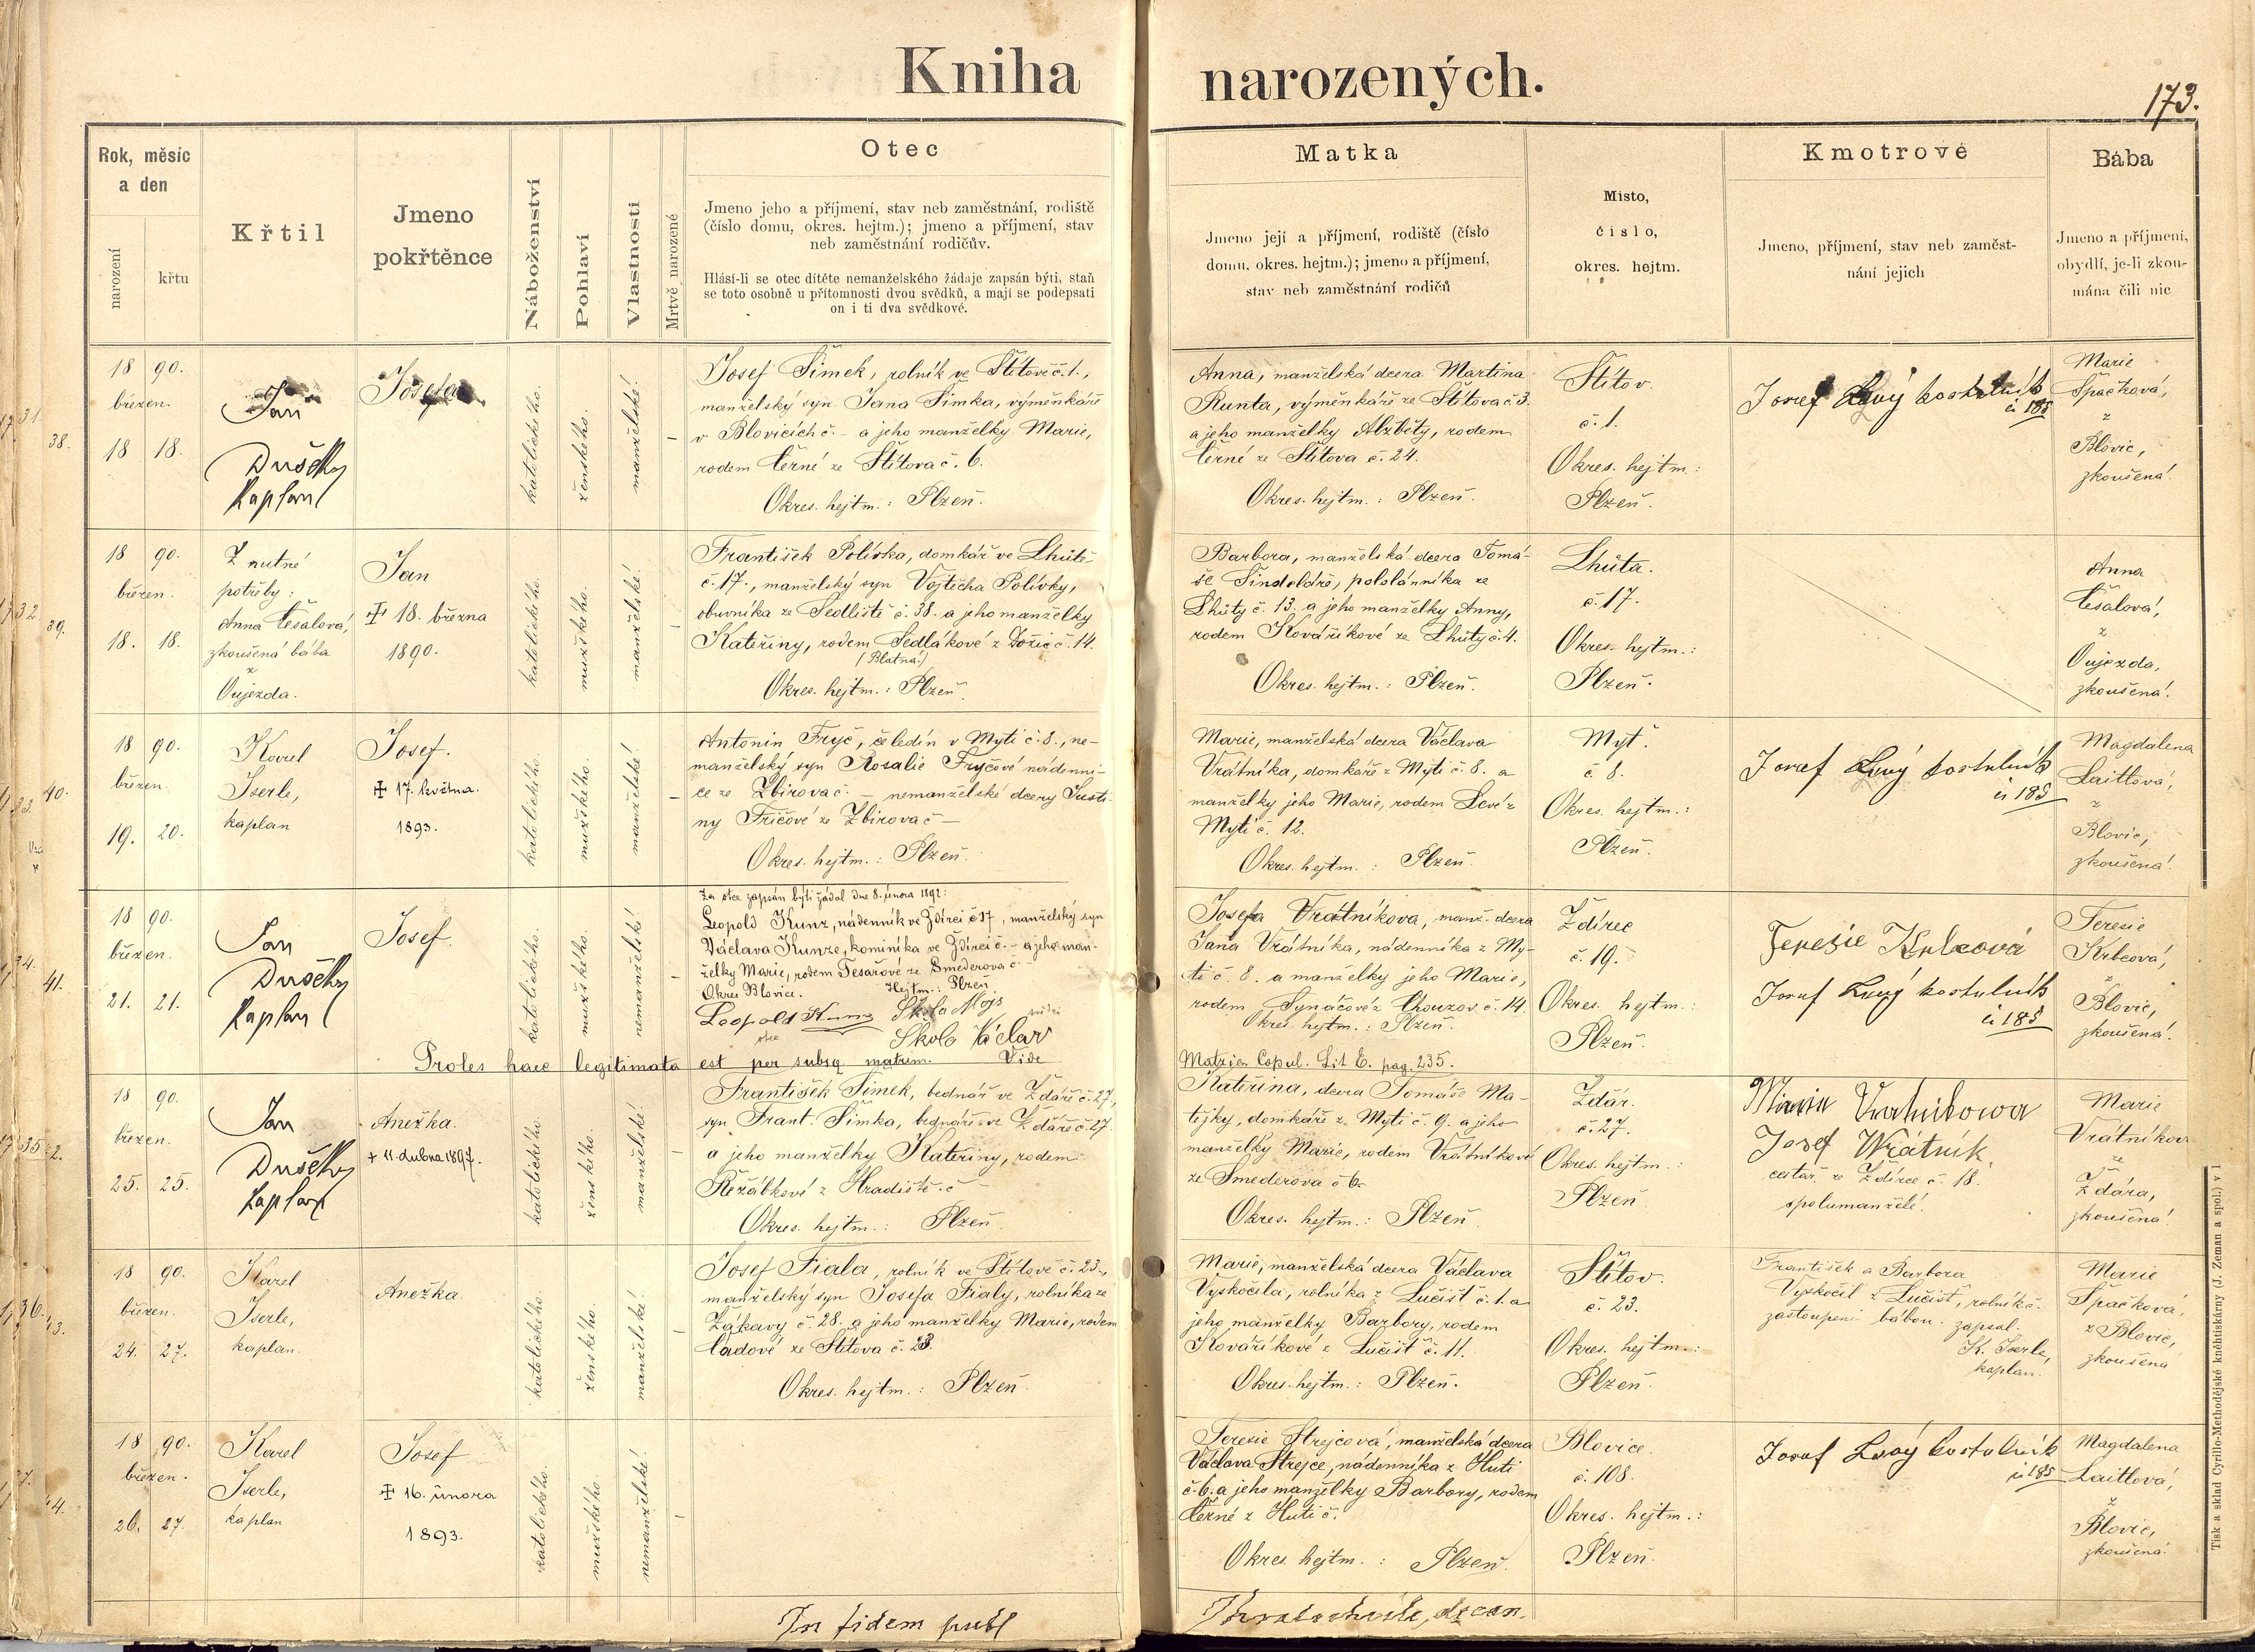 Kniha narozených.
173.
Rok, měsíc
a den
narození
křtu
Křtil
Jmeno
pokřtěnce
Náboženství
Pohlaví
Vlastnosti
Mrtvě narozené
Otec
Jmeno jeho a příjmení, stav neb zaměstnání, rodiště
(číslo domu, okres. hejtm.); jmeno a příjmení, stav
neb zaměstnání rodičův.
Hlásí-li se otec dítěte nemanželského žádaje zapsán býti, staň
se toto osobně u přítomnosti dvou svědků, a mají se podepsati
on i ti dva svědkové.
Matka
Jmeno její a příjmení, rodiště (číslo
domu, okres. hejtm.); jmeno a příjmení,
stav neb zaměstnání rodičů
Místo,
číslo,
okres. hejtm.
Kmotrové
Jmeno, příjmení, stav neb zaměst-
nání jejich
Bába
Jmeno a příjmení,
obydlí, je-li zkou-
mána čili nic
38.
18 90.
březen.
18 18.
Jan
Dušek
Kaplan
Josefa
katolického.
ženského.
manželské!
Josef Šimek, rolník ve Štítově č. 1.,
manželský syn Jana Šimka, výměnkáře
v Blovicích č. – a jeho manželky Marie,
rodem Černé ze Štítova č. 6.
Okres. hejtm.: Plzeň.
Anna, manželská dcera Martina
Runta, výměnkáře ze Štítova č. 3.
a jeho manželky Alžběty, rodem
Černé ze Štítova č. 24.
Okres. hejtm.: Plzeň.
Štítov.
č. 1.
Okres. hejtm.:
Plzeň.
Josef Lvý kostelník
č 185
Marie
Špačková,
z
Blovic,
zkoušená.
39.
18 90.
březen.
18. 18.
Z nutné
potřeby:
Anna Češalová,
zkoušená bába
z
Oujezda.
Jan
✝ 18. března
1890.
katolického.
mužského.
manželské!
František Polívka, domkář ve Lhůtě
č. 17., manželský syn Vojtěcha Polívky,
obuvníka ze Sedliště č. 38. a jeho manželky
Kateřiny, rodem Sedlákové z Ložic č. 14.
(Blatná.)
Okres. hejtm.: Plzeň.
Barbora, manželská dcera Tomá-
še Šindeláře, pololánníka ze
Lhůty č. 13. a jeho manželky Anny,
rodem Kováříkové ze Lhůty č. 4.
Okres. hejtm.: Plzeň.
Lhůta.
č. 17.
Okres. hejtm.:
Plzeň.
Anna
Češalová,
z
Oujezda,
zkoušená.
40.
18 90.
březen.
19. 20.
Karel
Iserle,
kaplan
Josef.
✝ 17. května.
1893.
katolického.
mužského.
manželské!
Antonin Fryč, čeledín v Mýti č. 8., ne-
manželský syn Rosalie Fryčové nádenni-
ce ze Zbirova č. – nemanželské dcery Justi-
ny Fričové ze Zbirova č –
Okres. hejtm.: Plzeň.
Marie, manželská dcera Václava
Vrátníka, domkáře z Mýti č. 8. a
manželky jeho Marie, rodem Levé z
Mýti č. 12.
Okres. hejtm.: Plzeň.
Mýť.
č. 8.
Okres. hejtm.:
Plzeň.
Josef Lvý kostelník
č 185
Magdalena
Laitlová,
z
Blovic,
zkoušená.
41.
18 90.
březen.
21. 21.
Jan
Dušek
Kaplan
Josef.
katolického.
mužského.
nemanželské!
Za otce zapsán býti žádal dne 8. února 1892:
Leopold Kunz, nádenník ve Ždírci č 17, manželský syn
Václava Kunze, kominíka ve Ždírci č. – a jeho man-
želky Marie, rodem Tesařové ze Smederova č –
Okres Blovice. Hejtm.: Plzeň.
Leopold Kunz
otce
Škola Alojs
svědci
Škola Václav
Proles haec legitimata est per subsq. matrim. Vide
Matrica Copul. Lit E. pag. 235.
Josefa Vrátníkova, manž. dcera
Jana Vrátníka, nádenníka z Mý-
ti č. 8. a manželky jeho Marie,
rodem Synáčové z Chouzov č. 14.
Okres. hejtm.: Plzeň.
Ždírec
č. 19.
Okres. hejtm.:
Plzeň.
Terezie Krbcová
Josef Lvý kostelník
č 185
Teresie
Krbcová,
z
Blovic,
zkoušená!
18 90.
březen.
25. 25.
Jan
Dušek
kaplan
Anežka.
+ 11. dubna 1897.
katolického.
ženského.
manželské!
František Šimek, bednář ve Ždáře č. 27,
syn Frant. Šimka, bednáře ve Ždáře č. 27.
a jeho manželky Kateřiny, rodem
Řežábkové z Hradiště. č –
Okres. hejtm.: Plzeň.
Kateřina, dcera Tomáše Ma-
tějky, domkáře z Mýti č. 9. a jeho
manželky Marie, rodem Vrátníkové
ze Smederova č 6.
Okres. hejtm.: Plzeň.
Ždár.
č. 27.
Okres. hejtm.:
Plzeň
Marie Vratnikowa
Josef Wrátník,
cestář ze Ždírce č. 18.
spolumanželé.
Marie
Vrátníkova
ze
Ždára,
zkoušena!
18 90.
březen.
24. 27.
Karel
Iserle,
kaplan.
Anežka.
katolického.
ženského.
manželské!
Josef Fiala, rolník ve Štítově č. 23.,
manželský syn Josefa Fialy, rolníka ze
Žákavy č. 28. a jeho manželky Marie, rodem
Čadové ze Štítova č. 23.
Okres. hejtm.: Plzeň.
Marie, manželská dcera Václava
Vyskočila, rolníka z Lučišť č. 1. a
jeho manželky Barbory, rodem
Kováříkové z Lučišť č. 11.
Okres. hejtm.: Plzeň.
Štítov.
č. 23.
Okres. hejtm.:
Plzeň.
František a Barbora
Vyskočil z Lučišť, rolník č.
zastoupeni bábou. zapsal.
K. Iserle,
kaplan.
Marie
Špačková,
z Blovic,
zkoušená
44.
18 90.
březen.
26. 27.
Karel
Iserle,
kaplan
Josef
✝ 16. února
1893.
katolického.
mužského.
nemanželské!
Teresie Strejcová, manželská dcera
Václava Strejce, nádenníka z Huti
č. 6. a jeho manželky Barbory, rodem
Černé z Huti č.
Okres. hejtm.: Plzeň.
Blovice.
č. 108.
Okres. hejtm.:
Plzeň.
Josef Lvý kostelník
č 185
Magdalena
Laitlová,
z
Blovic,
zkoušená.
In fidem publ
decan.
Tisk a sklad Cyrillo-Methodějské kněhtiskárny (J. Zeman a spol.) v